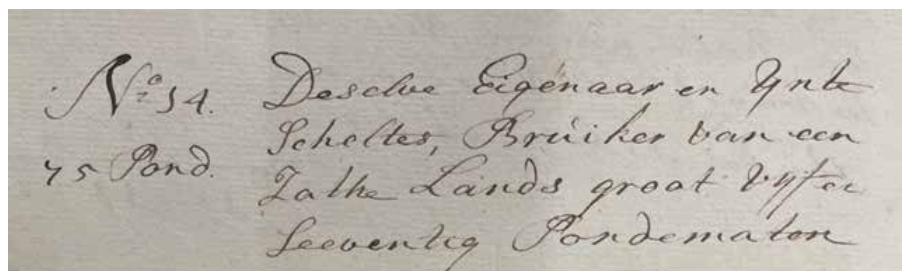 No. 54. Deselve Eigenaar en Ynte
Scheltes, Brúiker van een
75 Pond. Zathe Lands groot Vijf en
Seeventig Pondematen